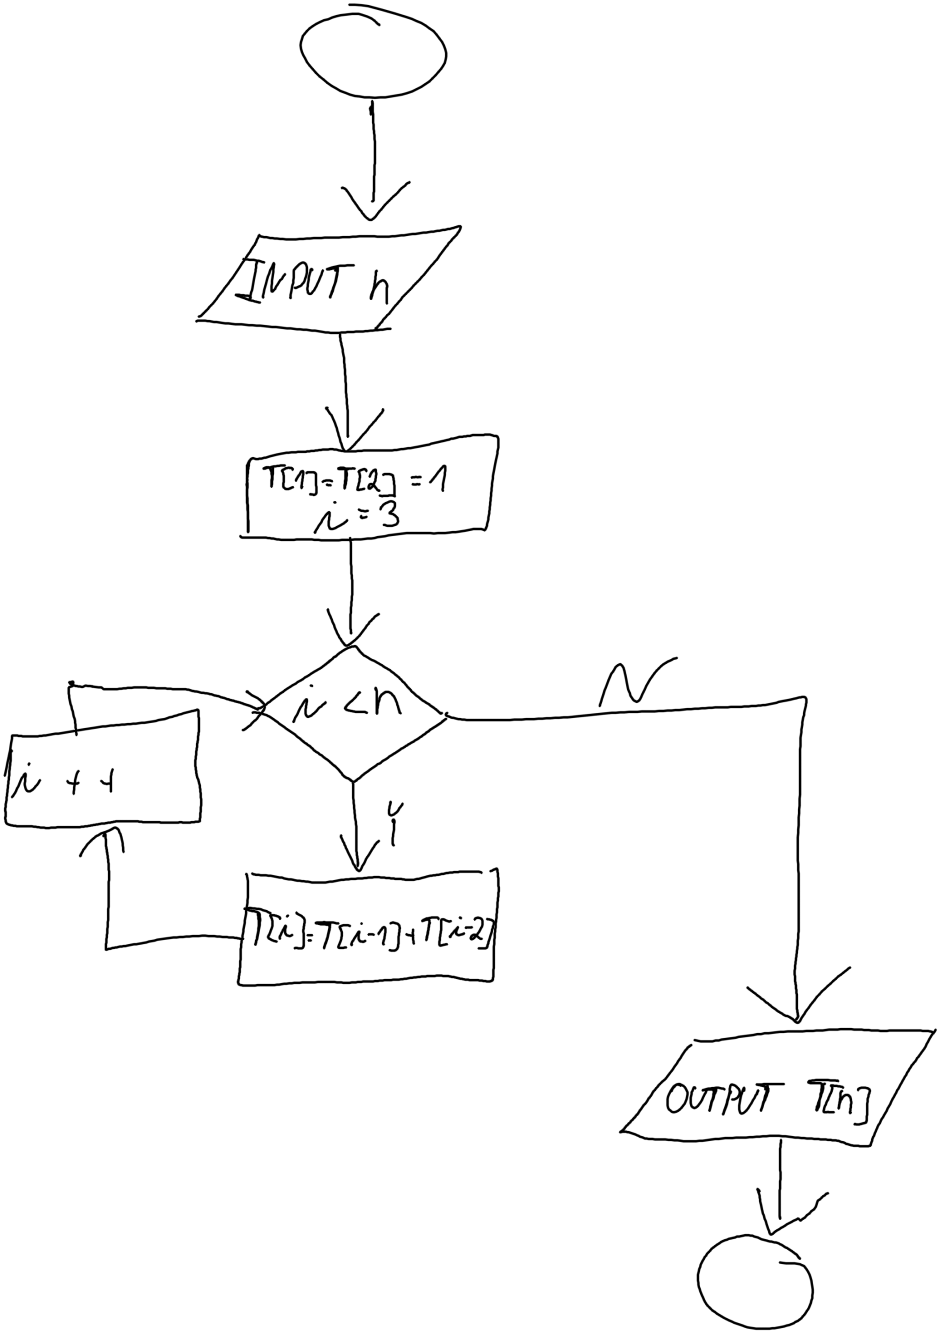 INPUT n
T[1]=T[2]=1
i=3
i<n
N
i++
i
T[i]=T[i-1]+T[i-2]
OUTPUT T[n]